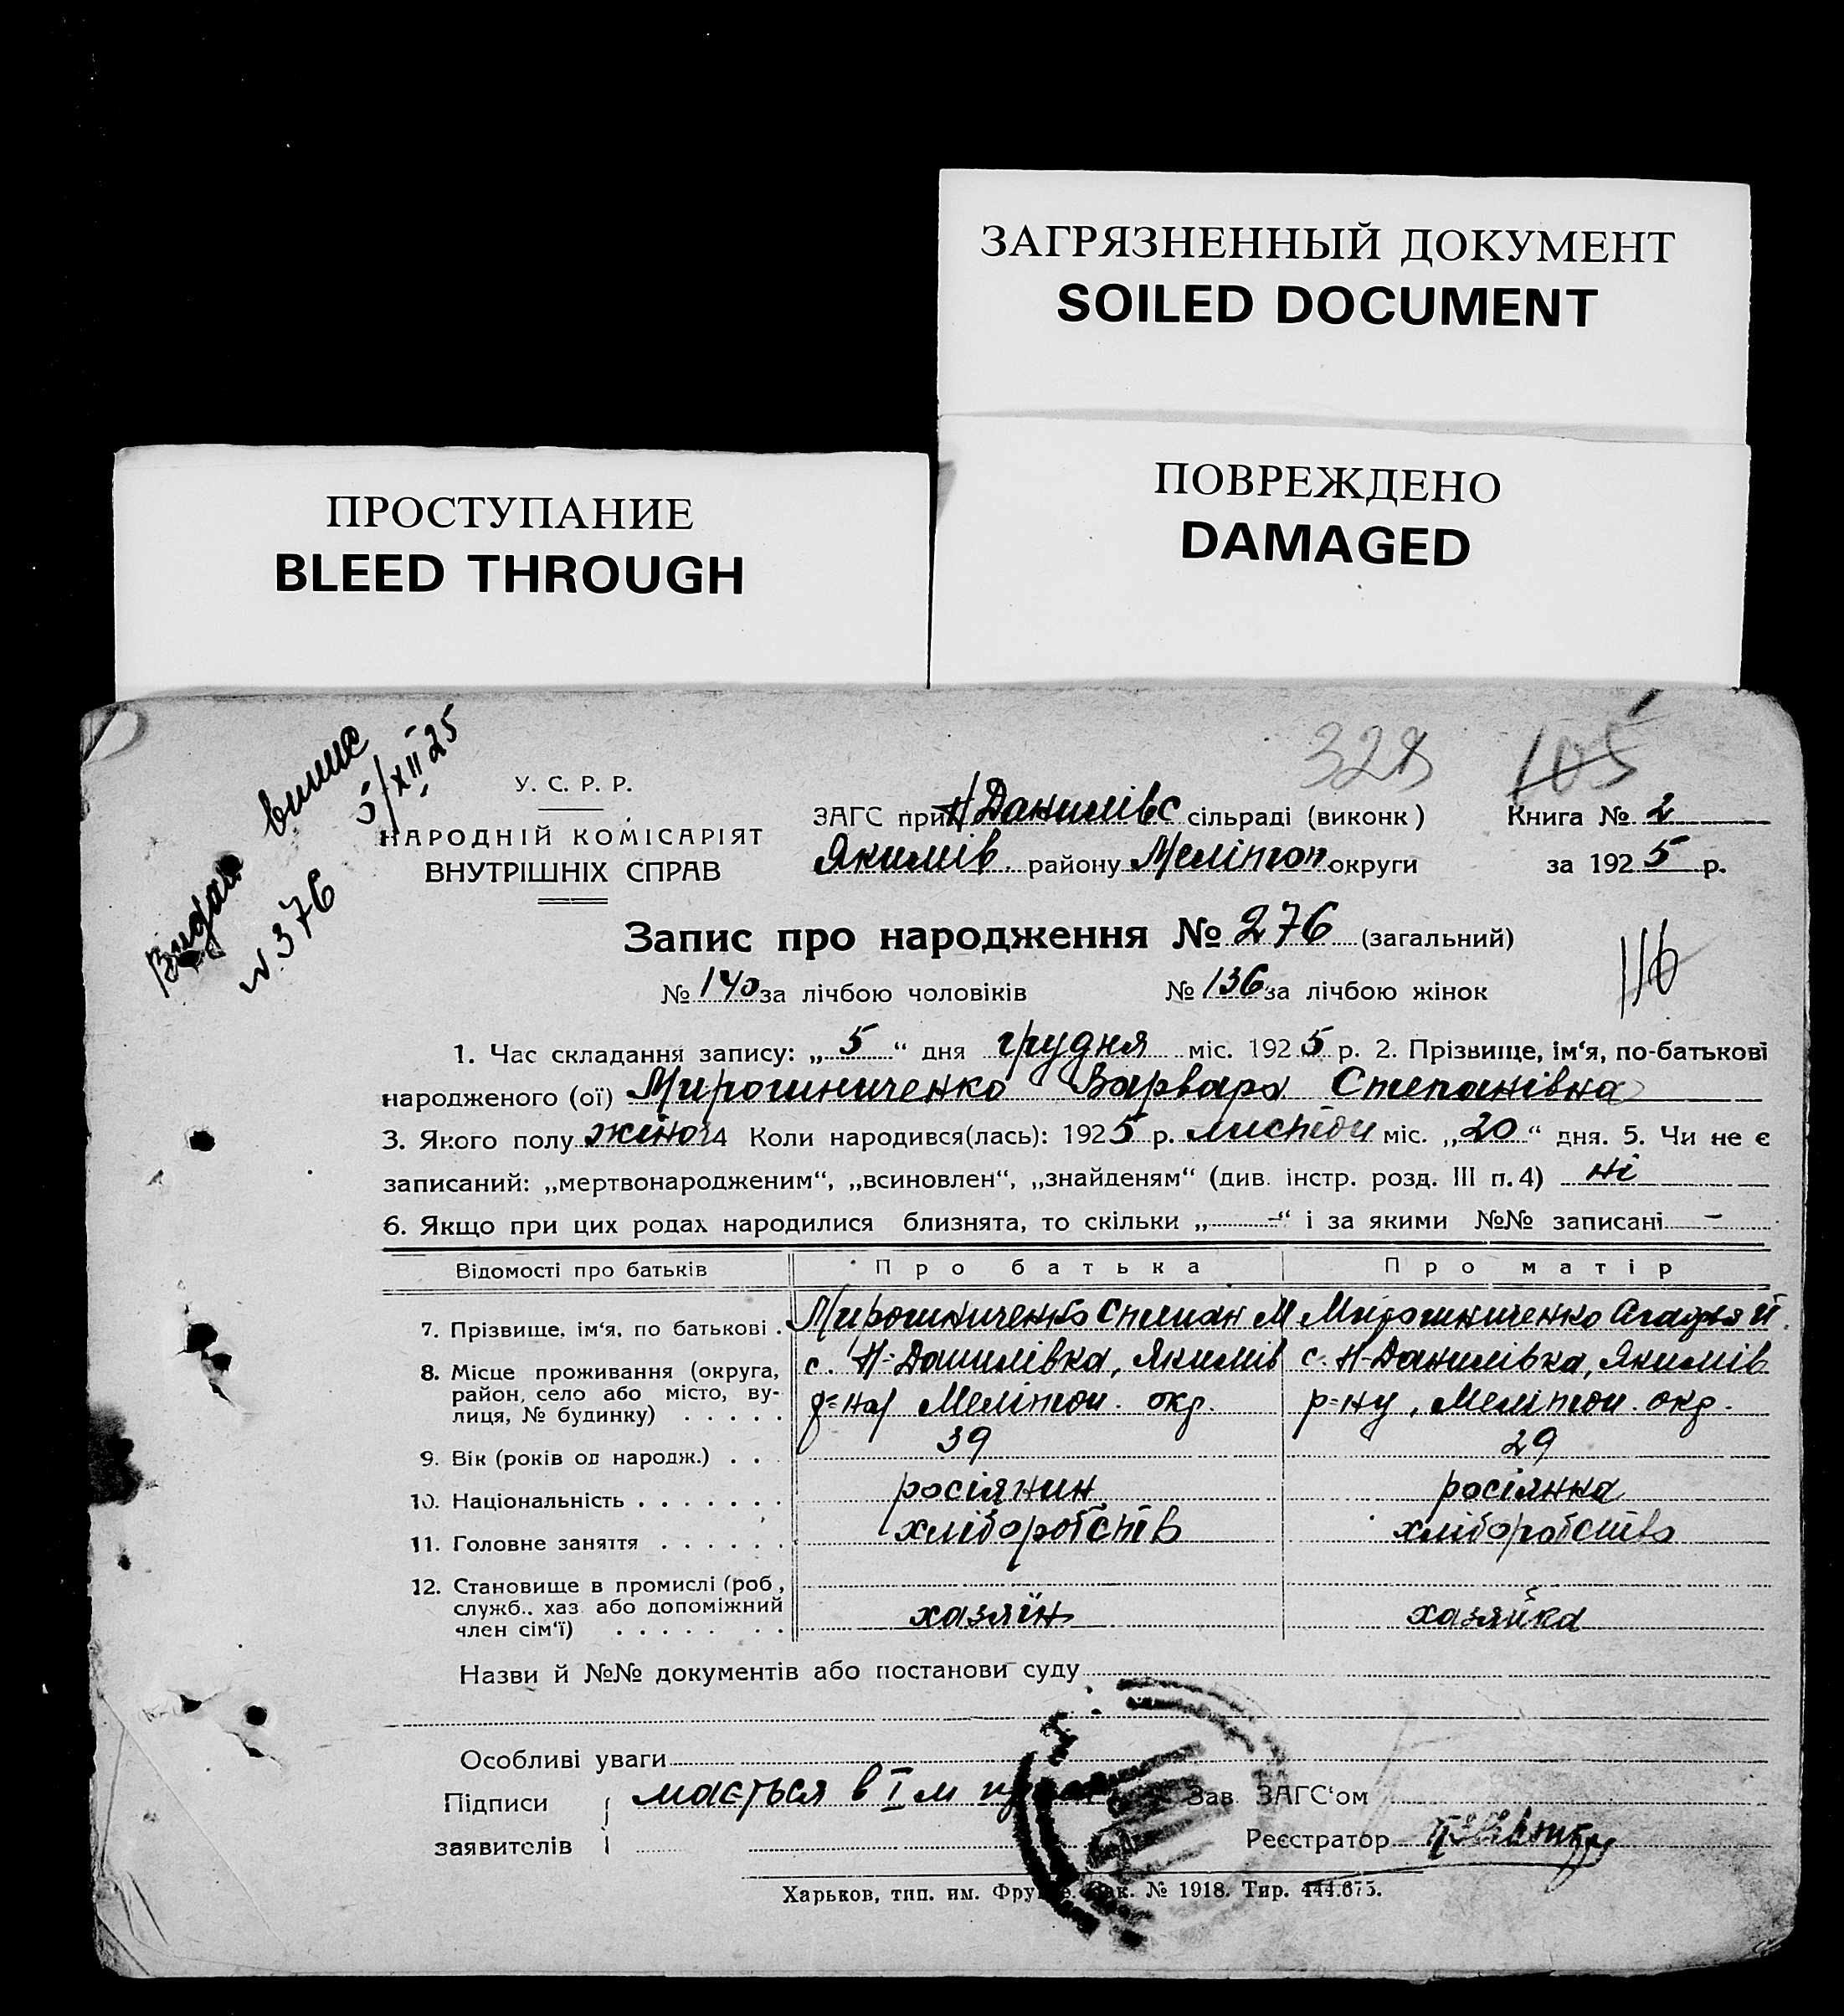 ЗАГРЯЗНЕННЫЙ ДОКУМЕНТ
SOILED DOCUMENT
ПРОСТУПАНИЕ
BLEED THROUGH
ПОВРЕЖДЕНО
DAMAGED
Видан випис
№ 376 5/XII 25
328 105
У. С. Р. Р.
НАРОДНІЙ КОМІСАРІЯТ
ВНУТРІШНІХ СПРАВ
ЗАГС при Н Данилівс сільраді (виконк) Книга № 2
Якимів району Мелітоп округи за 1925 р.
Запис про народження № 276 (загальний)
№ 140 за лічбою чоловіків № 136 за лічбою жінок
116
1. Час складання запису: „5“ дня грудня міс. 1925 р. 2. Прізвище, ім‘я, по-батькові
народженого (ої) Мирошниченко Варвара Степанівна
3. Якого полу жіноч 4 Коли народився(лась): 1925 р. листоп міс. „20“ дня. 5. Чи не є
записаний: „мертвонародженим“, „всиновлен“, „знайденям“ (див. інстр. розд. III п. 4) ні
6. Якщо при цих родах народилися близнята, то скільки „-“ і за якими №№ записані -
Відомості про батьків Про батька Про матір
7. Прізвище, ім‘я, по батькові . Мирошниченко Степан М Мирошниченко Агафья Й.
8. Місце проживання (округа, с. Н-Данилівка, Якимів с. Н-Данилівка, Якимів
район, село або місто, ву- р-ну Мелітоп. окр. р-ну, Мелітоп. окр.
лиця, № будинку) . . . . .
9. Вік (років од народж.) . . 39 29
10. Національність . . . . . . . росіянин росіянка
11. Головне заняття . . . . . . хліборобств хліборобство
12. Становище в промислі (роб.,
служб., хаз. або допоміжний хазяїн хазяйка
член сім‘ї) . . . . . . .
Назви й №№ документів або постанови суду
Особливі уваги
Підписи мається в І м Зав. ЗАГС‘ом
заявителів Реєстратор
Харьков, тип. им. Фрунзе. Зак. № 1918. Тир. 444.675.